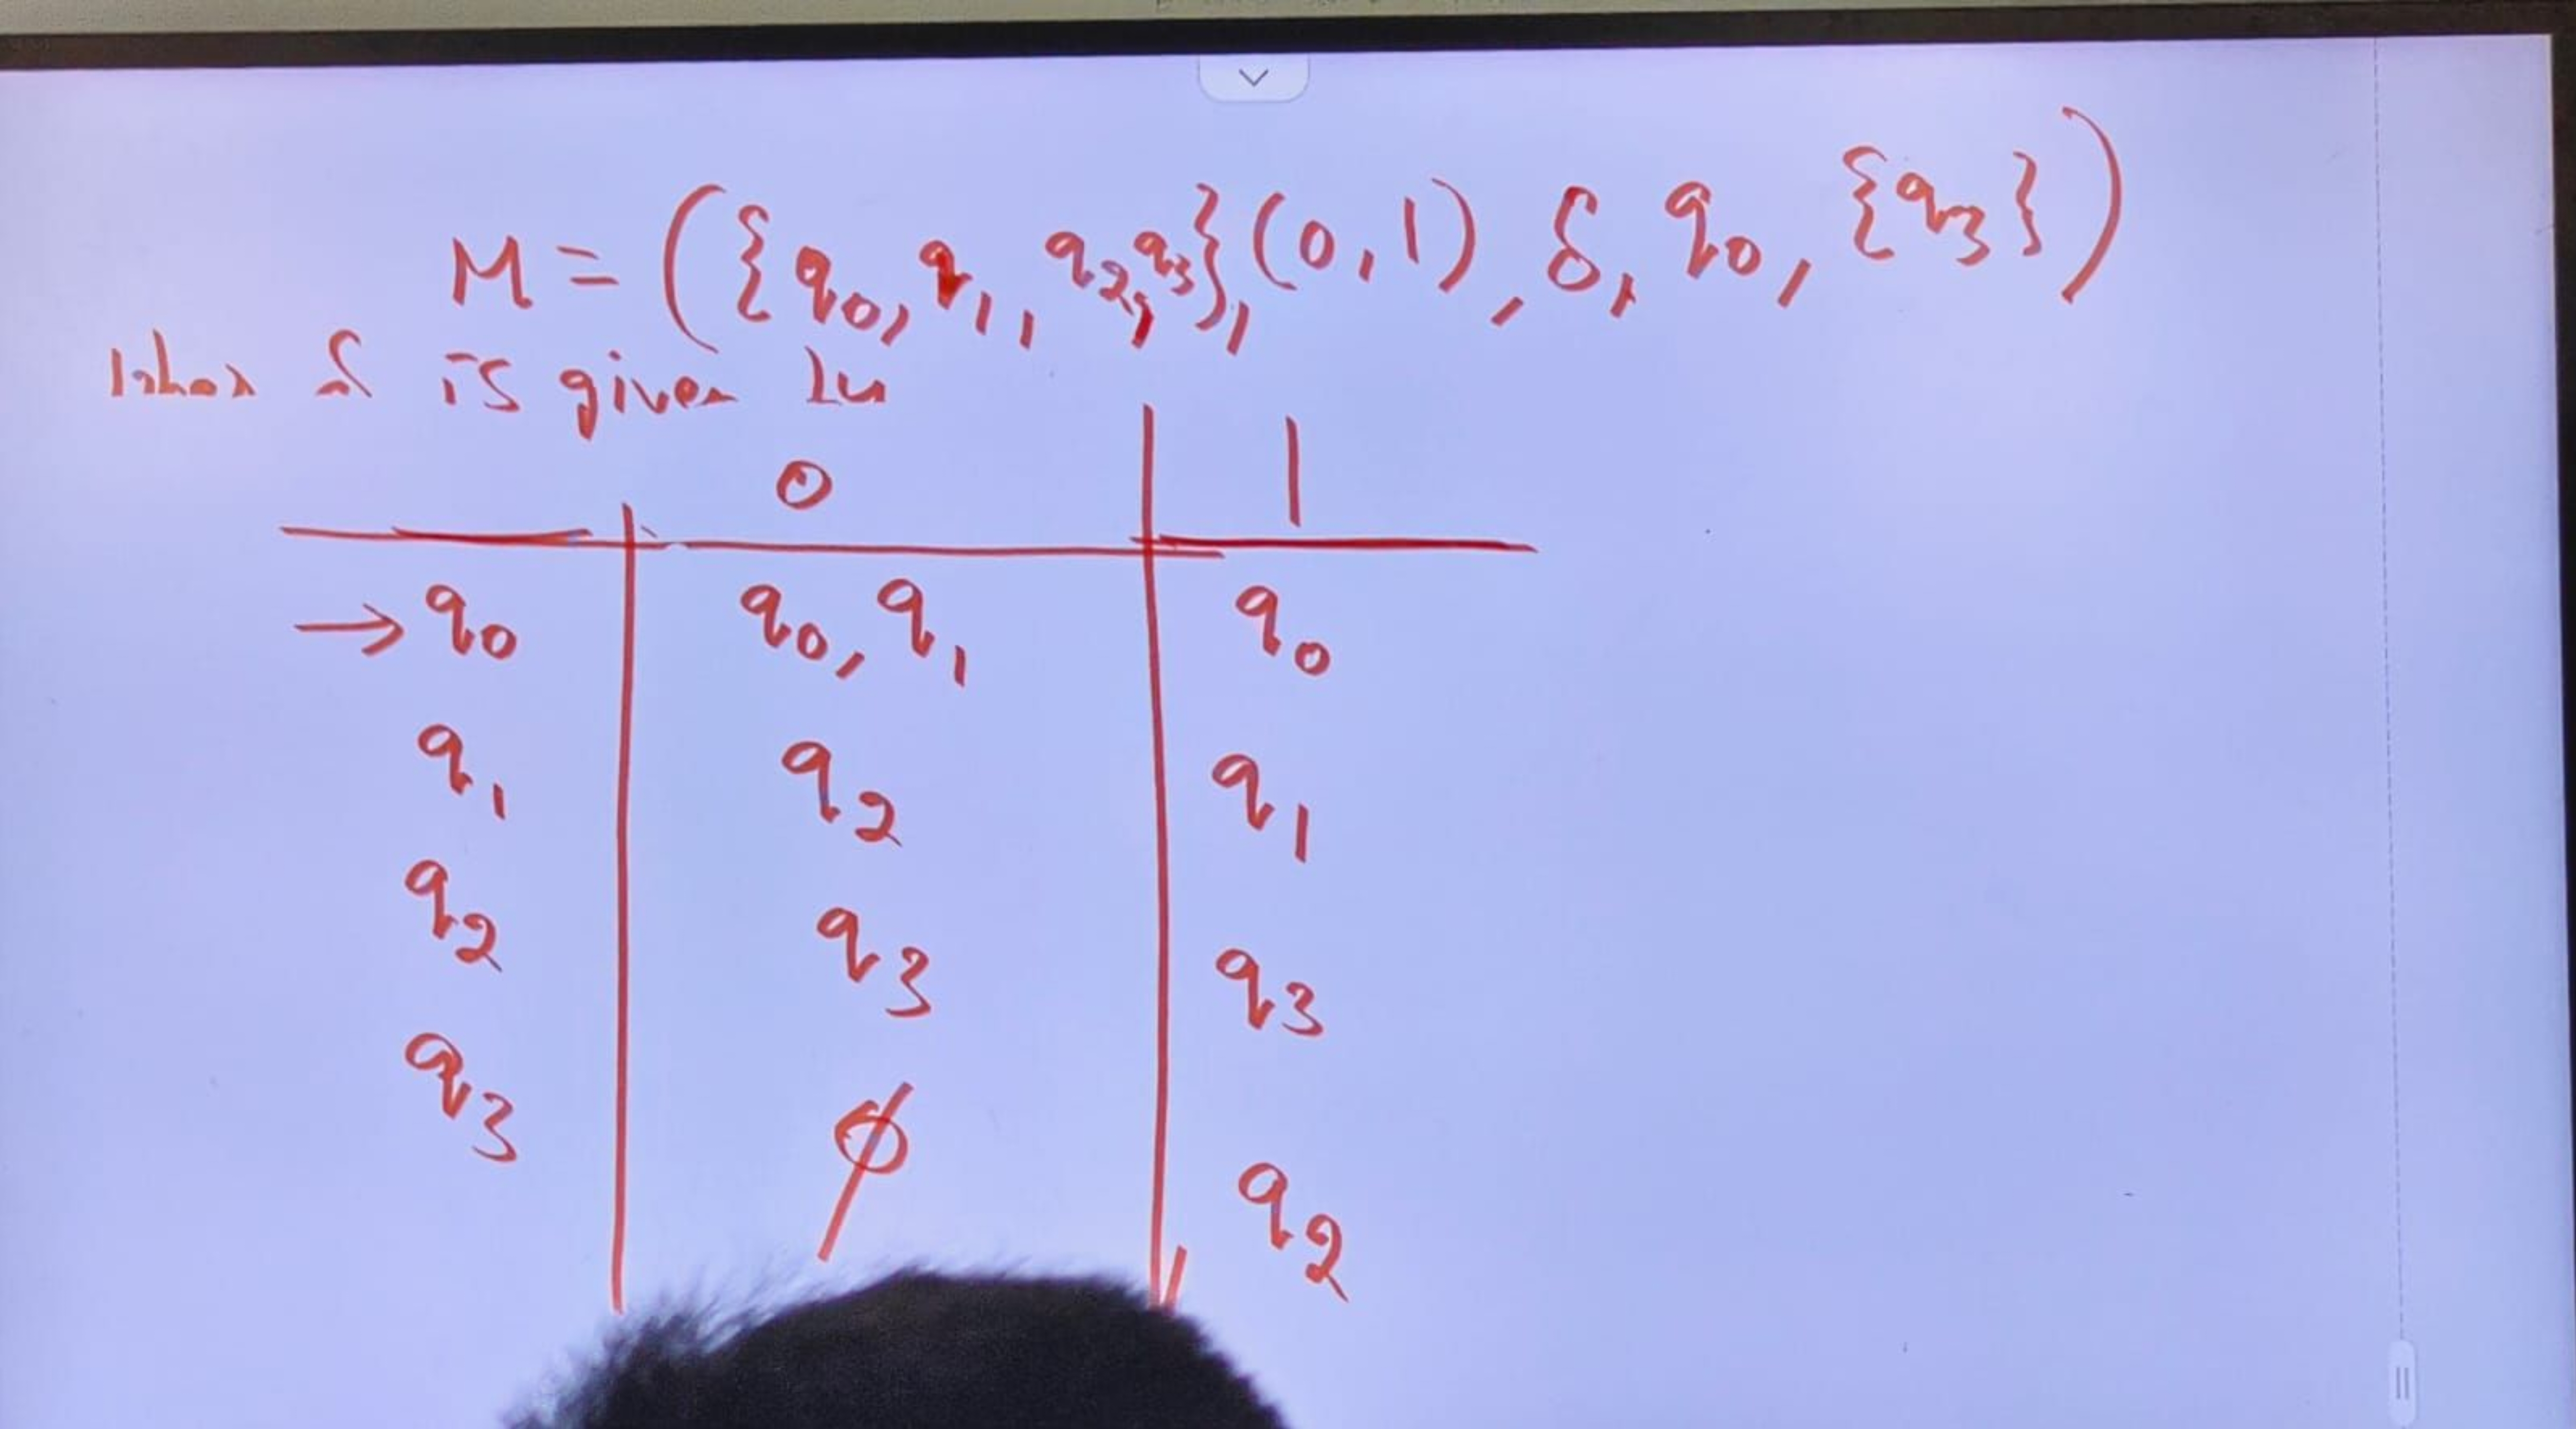 M = ({q0, q1, q2, q3}, (0,1), δ, q0, {q3})
δ is given
0 1
→ q0 q0, q1 q0
q1 q2 q1
q2 q3 q3
q3 ϕ q2